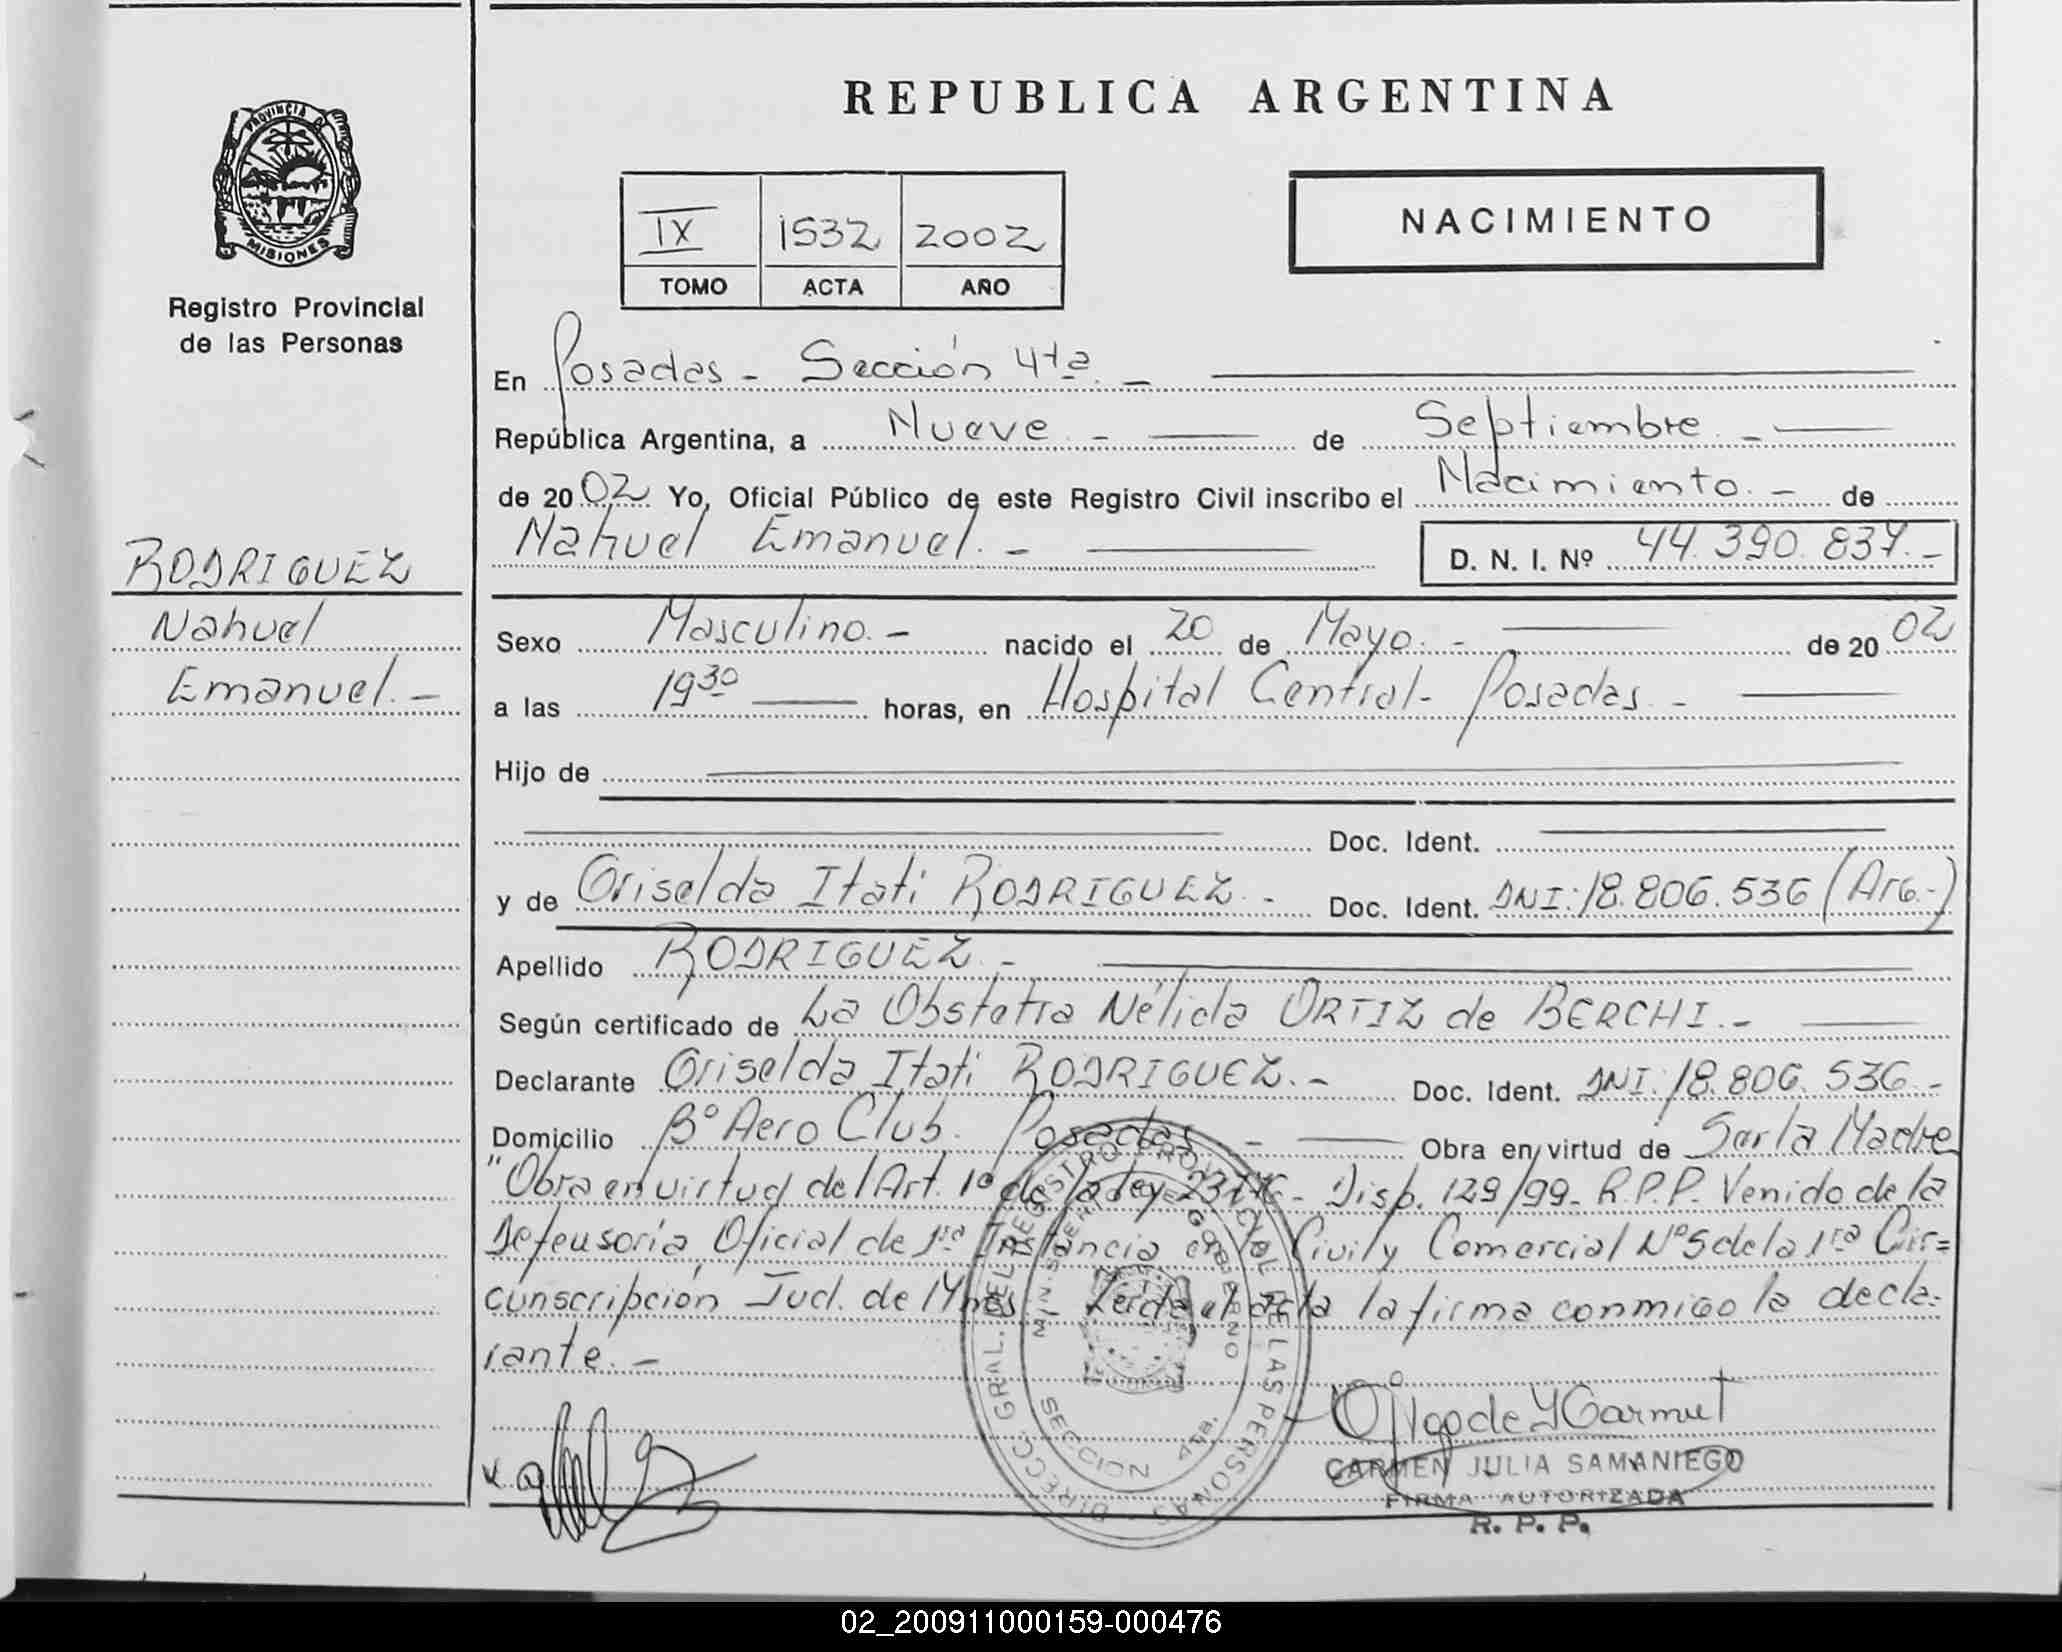 REPUBLICA ARGENTINA
PROVINCIA D
MISIONES
Registro Provincial
de las Personas
IX 1532 2002
TOMO ACTA AÑO
NACIMIENTO
En Posadas - Sección 4ta. -
República Argentina, a Nueve. - de Septiembre. -
de 2002 Yo, Oficial Público de este Registro Civil inscribo el Nacimiento. - de
Nahuel Emanuel. - D. N. I. Nº 44.390.837.-
RODRIGUEZ
Nahuel
Emanuel. -
Sexo Masculino. - nacido el 20 de Mayo. - de 20 02
a las 19 30 horas, en Hospital Central- Posadas. -
Hijo de
Doc. Ident.
y de Griselda Itati RODRIGUEZ. - Doc. Ident. DNI: 18.806.536 (Arg.-)
Apellido RODRIGUEZ. -
Según certificado de La Obstetra Nélida ORTIZ de BERCHI. -
Declarante Griselda Itati RODRIGUEZ. - Doc. Ident. DNI: 18.806.536.-
Domicilio Bº Aero Club. Posadas. - Obra en virtud de Ser la Madre
"Obra en virtud del Art. 1º de la ley - Disp. 129/99- R.P.P. Venido de la
Defensoría Oficial de 1ra Instancia en lo Civil y Comercial Nº 5 de la 1ra Cir=
cunscripción Jud. de Mnes. - Leída el acta la firma conmigo la decla-
rante. -
DIRECC. GRAL. DEL REGISTRO PROVINCIAL DE LAS PERSONAS
MINISTERIO DE GOBIERNO
SECCION 4ta.
CARMEN JULIA SAMANIEGO
FIRMA AUTORIZADA
R. P. P.
02_200911000159-000476